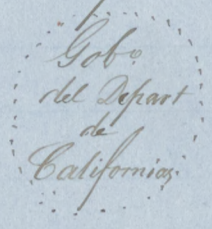 Gobº
del Depart
de
Californias.